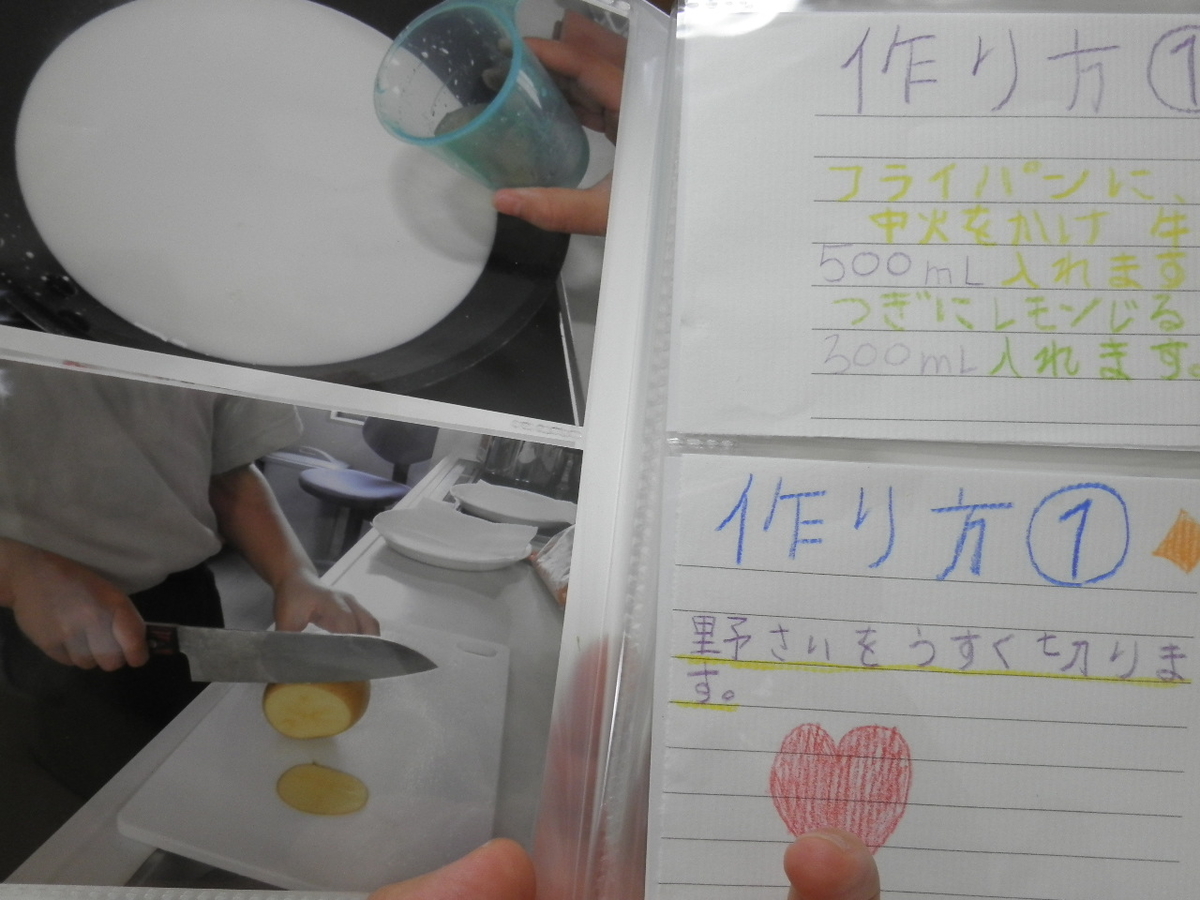 作り方①
フライパンに、
中火をかけ 牛
500mL入れます
つぎにレモンじる
300mL入れます。
作り方①
野さいをうすく切りま
す。